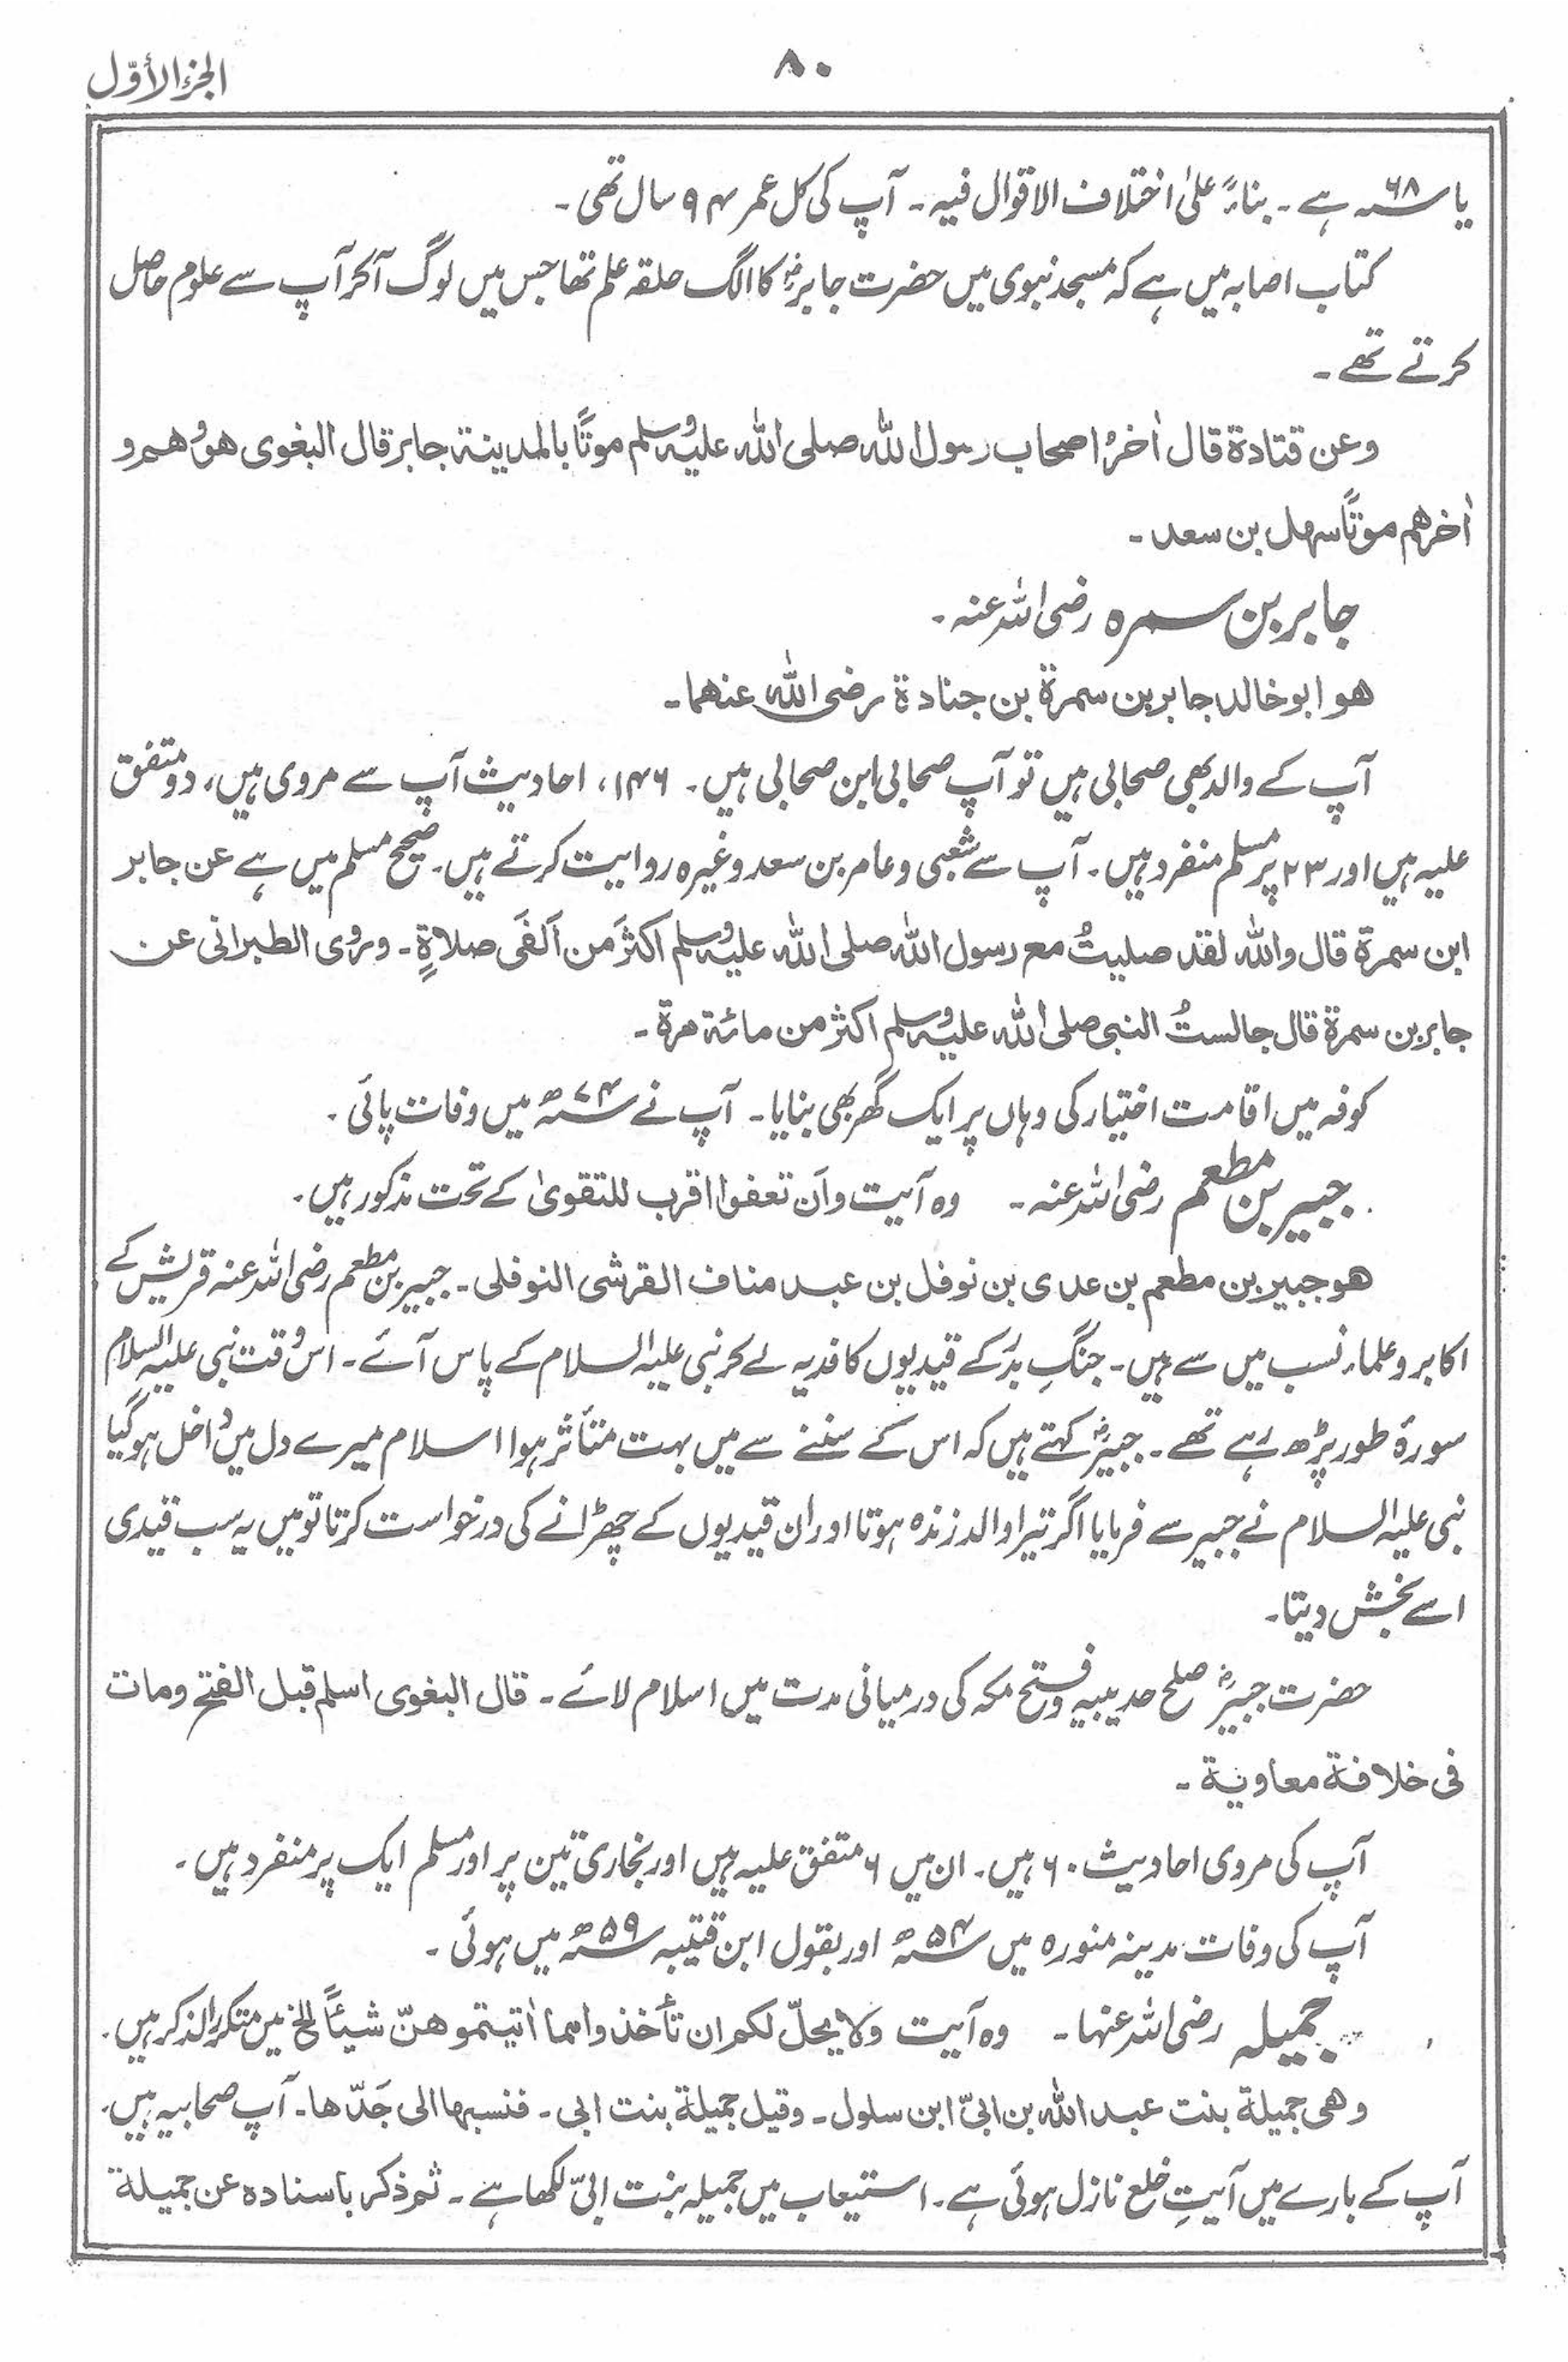 الجزء الأوّل
۸۰
یا ۶۸ سنہ ہے ۔ بناءً علیٰ اختلاف الاقوال فیہ ۔ آپ کی کل عمر ۹۴ سال تھی ۔
کتاب اصابہ میں ہے کہ مسجد نبوی میں حضرت جابرؓ کا الگ حلقہ علم تھا جس میں لوگ آکر آپ سے علوم حاصل
کرتے تھے ۔
وعن قتادة قال اٰخرُ اصحاب رسول اللہ صلی اللہ علیہ وسلم موتًا بالمدینۃ جابر قال البغوی هو وهم و
اٰخرهم موتًا سهل بن سعد ۔
جابر بن سمرہ رضی اللہ عنہ ۔
هو ابو خالد جابر بن سمرة بن جنادة رضی اللہ عنهما ۔
آپ کے والد بھی صحابی ہیں تو آپ صحابی ابن صحابی ہیں ۔ ۱۴۶، احادیث آپ سے مروی ہیں، دو متفق
علیہ ہیں اور ۲۳ پر مسلم منفرد ہیں ۔ آپ سے شعبی و عامر بن سعد وغیرہ روایت کرتے ہیں ۔ صحیح مسلم میں ہے عن جابر
ابن سمرة قال واللہ لقد صلیتُ مع رسول اللہ صلی اللہ علیہ وسلم اکثرَ من اَلفَی صلاةٍ ۔ وروی الطبرانی عن
جابر بن سمرة قال جالستُ النبی صلی اللہ علیہ وسلم اکثر من مائة مرة ۔
کوفہ میں اقامت اختیار کی وہاں پر ایک گھر بھی بنایا ۔ آپ نے ۷۴ سنہھ میں وفات پائی ۔
جبیر بن مطعم رضی اللہ عنہ ۔ وہ آیت وأن تعفوا اقرب للتقویٰ کے تحت مذکور ہیں ۔
هو جبیر بن مطعم بن عدی بن نوفل بن عبد مناف القرشی النوفلی ۔ جبیر بن مطعم رضی اللہ عنہ قریش کے
اکابر و علماء نسب میں سے ہیں ۔ جنگِ بدر کے قیدیوں کا فدیہ لے کر نبی علیہ السلام کے پاس آئے ۔ اس وقت نبی علیہ السلام
سورۂ طور پڑھ رہے تھے ۔ جبیرؓ کہتے ہیں کہ اس کے سننے سے میں بہت متأثر ہوا اسلام میرے دل میں داخل ہوگیا
نبی علیہ السلام نے جبیر سے فرمایا اگر تیرا والد زندہ ہوتا اور ان قیدیوں کے چھڑانے کی درخواست کرتا تو میں یہ سب قیدی
اسے بخش دیتا ۔
حضرت جبیرؓ صلح حدیبیہ و فتح مکہ کی درمیانی مدت میں اسلام لائے ۔ قال البغوی اسلم قبل الفتح ومات
فی خلافة معاویة ۔
آپ کی مروی احادیث ۶۰ ہیں ۔ ان میں ۶ متفق علیہ ہیں اور بخاری تین پر اور مسلم ایک پر منفرد ہیں ۔
آپ کی وفات مدینہ منورہ میں ۵۴ سنہھ اور بقول ابن قتیبہ ۵۹ سنہھ میں ہوئی ۔
جمیلہ رضی اللہ عنہا ۔ وہ آیت ولا یحلّ لکم ان تأخذوا مما اٰتیتموهنّ شیئًا الخ میں متکرر الذکر ہیں ۔
وهی جمیلة بنت عبد اللہ بن ابیّ ابن سلول ۔ وقیل جمیلة بنت ابی ۔ فنسبها الی جَدّها ۔ آپ صحابیہ ہیں ۔
آپ کے بارے میں آیتِ خلع نازل ہوئی ہے ۔ استیعاب میں جمیلہ بنت ابیّ لکھا ہے ۔ ثم ذکر باسناده عن جمیلة